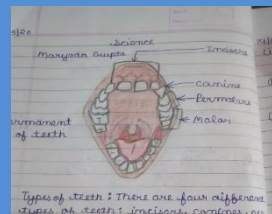 5/20
Science
Maryada Gupta
Incisors
canine
Permolars
Molar
of teeth
Types of teeth: There are four different
types of teeth: incisors, canines,